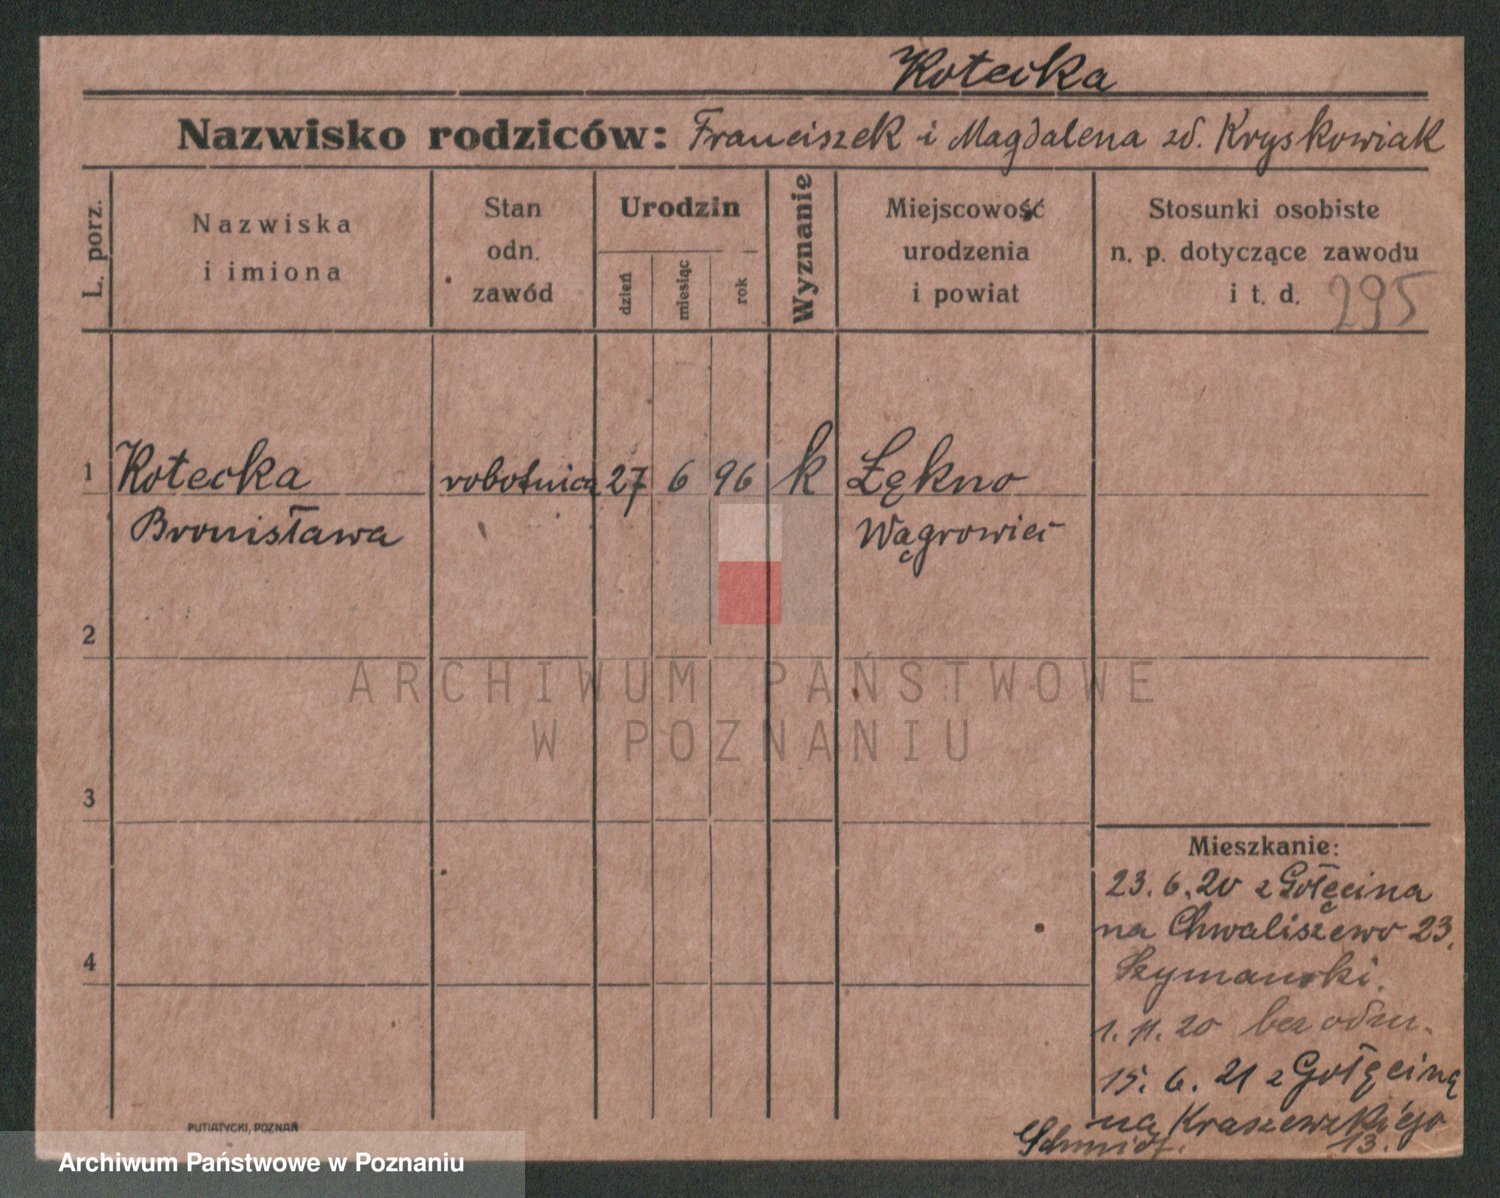 Kotecka
Nazwisko rodziców: Franciszek i Magdalena zd. Kryskowiak
L. porz.
Nazwiska
i imiona
Stan
odn.
zawód
Urodzin
dzień
miesiąc
rok
Wyznanie
Miejscowość
urodzenia
i powiat
Stosunki osobiste
n. p. dotyczące zawodu
i t. d.
295
1 Kotecka robotnica 27 6 96 k Łękno
Bronisława Wągrowiec
2
3
4
ARCHIWUM PAŃSTWOWE
W POZNANIU
Mieszkanie:
23. 6. 20 z Gołęcina
na Chwaliszewo 23.
Szymanski.
1. 11. 20 bez odm.
15. 6. 21 z Gołęcina
na Kraszewskiego
13.
Schmidt.
PUTIATYCKI, POZNAŃ
Archiwum Państwowe w Poznaniu